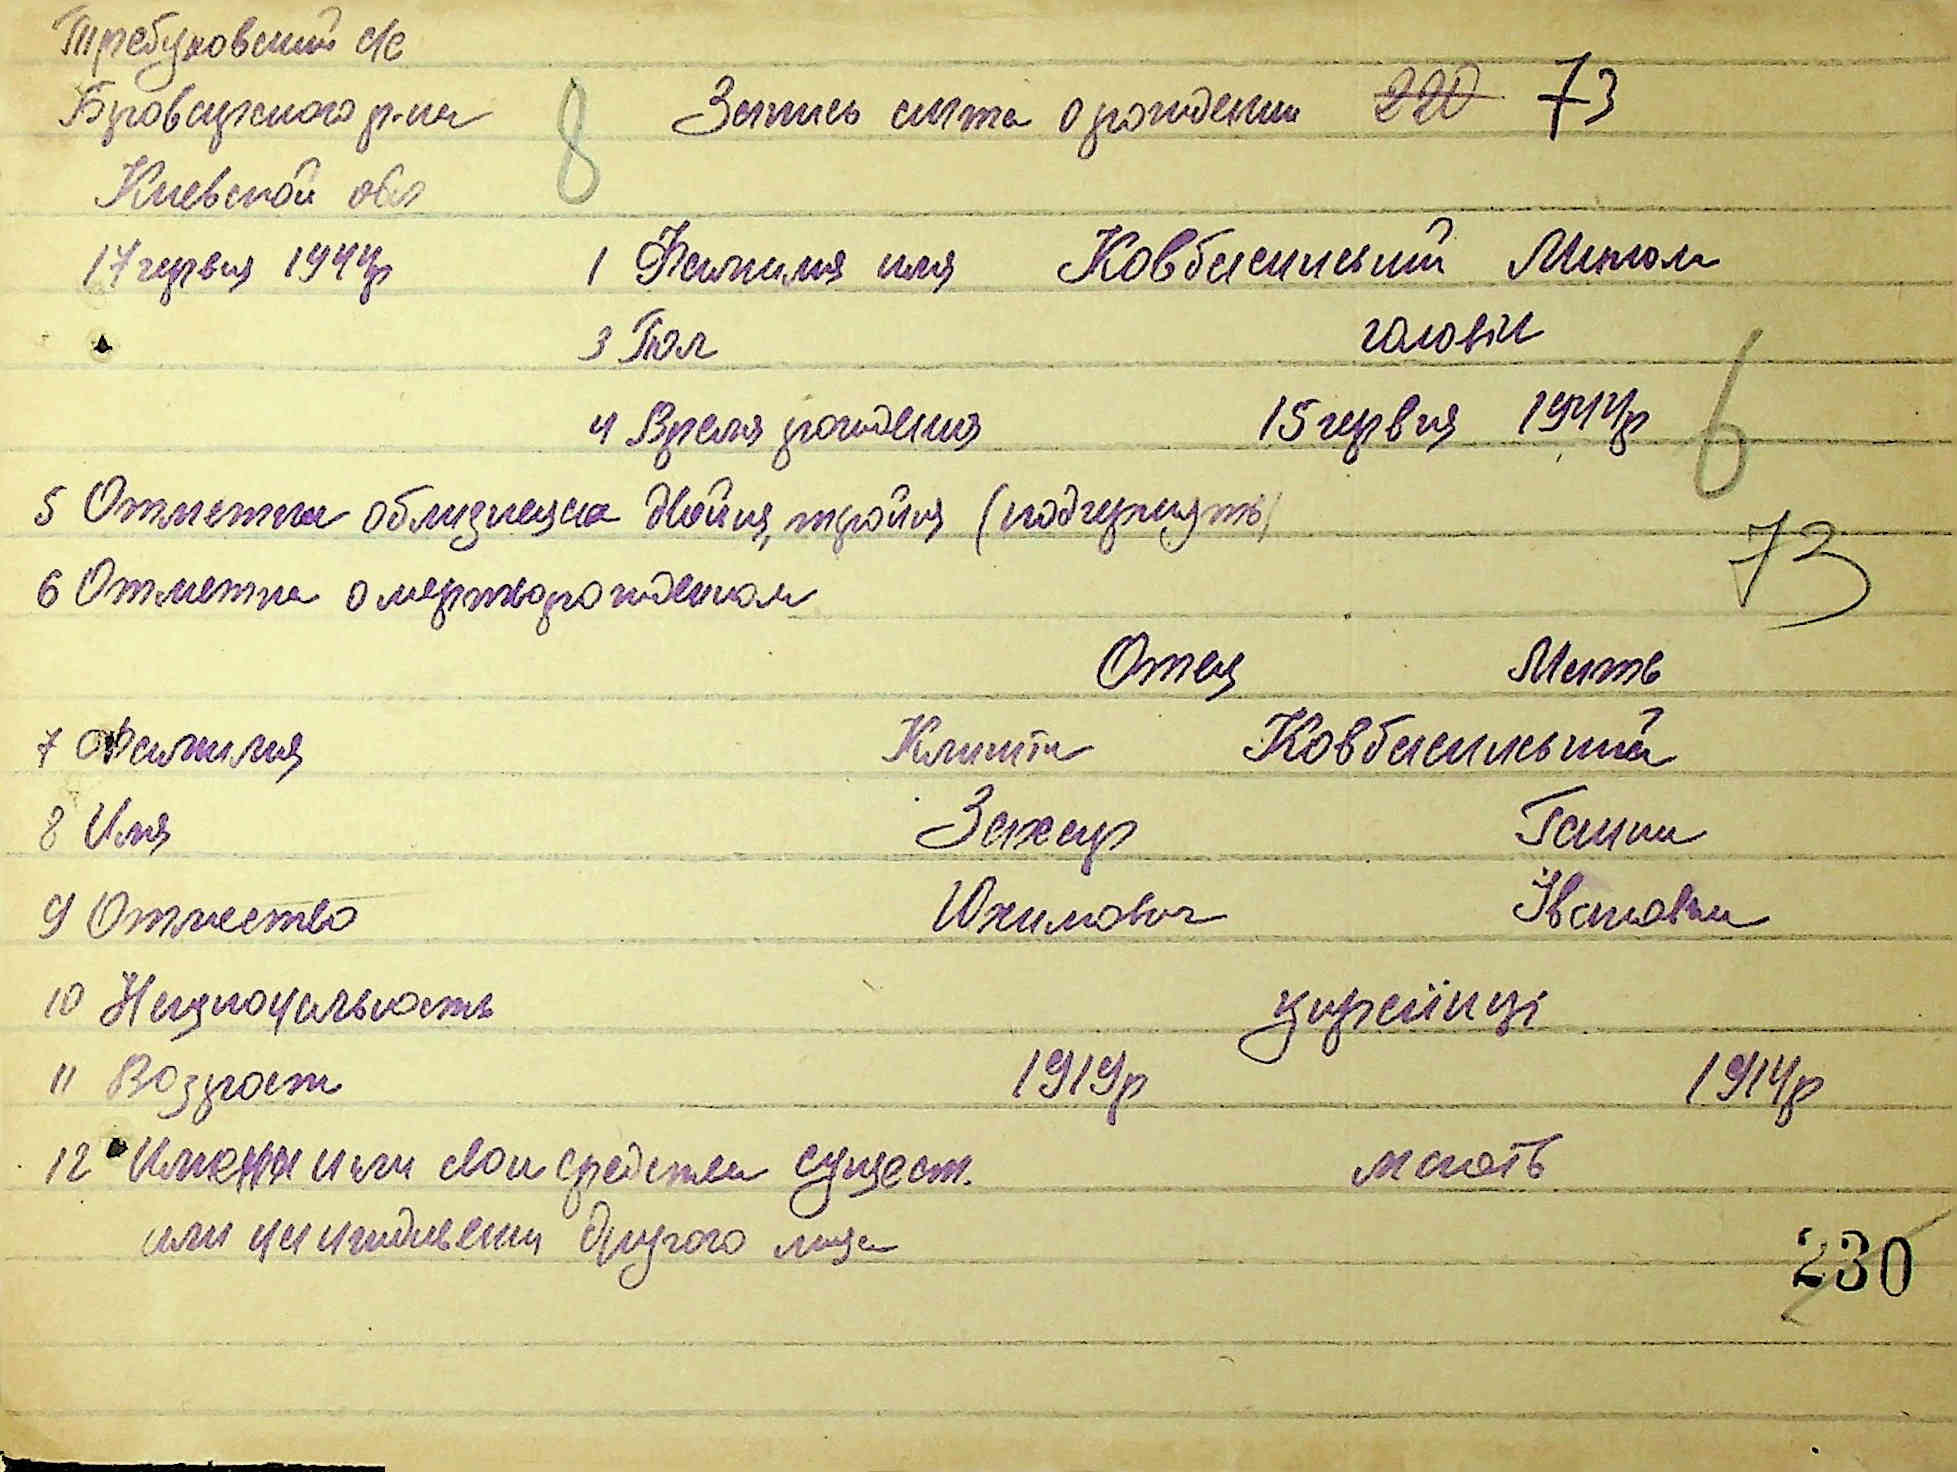 Требуховский с/с
Броварского р-на
8 Запись акта о рождении 220 73
Киевской обл
17 червня 1944р 1 Фамилия имя Ковбасинський Микола
3 Пол чоловіч
4 Время рождения 15 червня 1944р
6
5 Отметка о близнецах двойня, тройня (подчеркнуть)
73
6 Отметка о мертворожденном
Отец Мать
7 Фамилия Ковбасинська
8 Имя Захар Ганна
9 Отчество Юхимович Івановна
10 Национальность українці
11 Возраст 1919р 1914р
12 или свои средства сущест. мають
или на иждивении другого лица
230